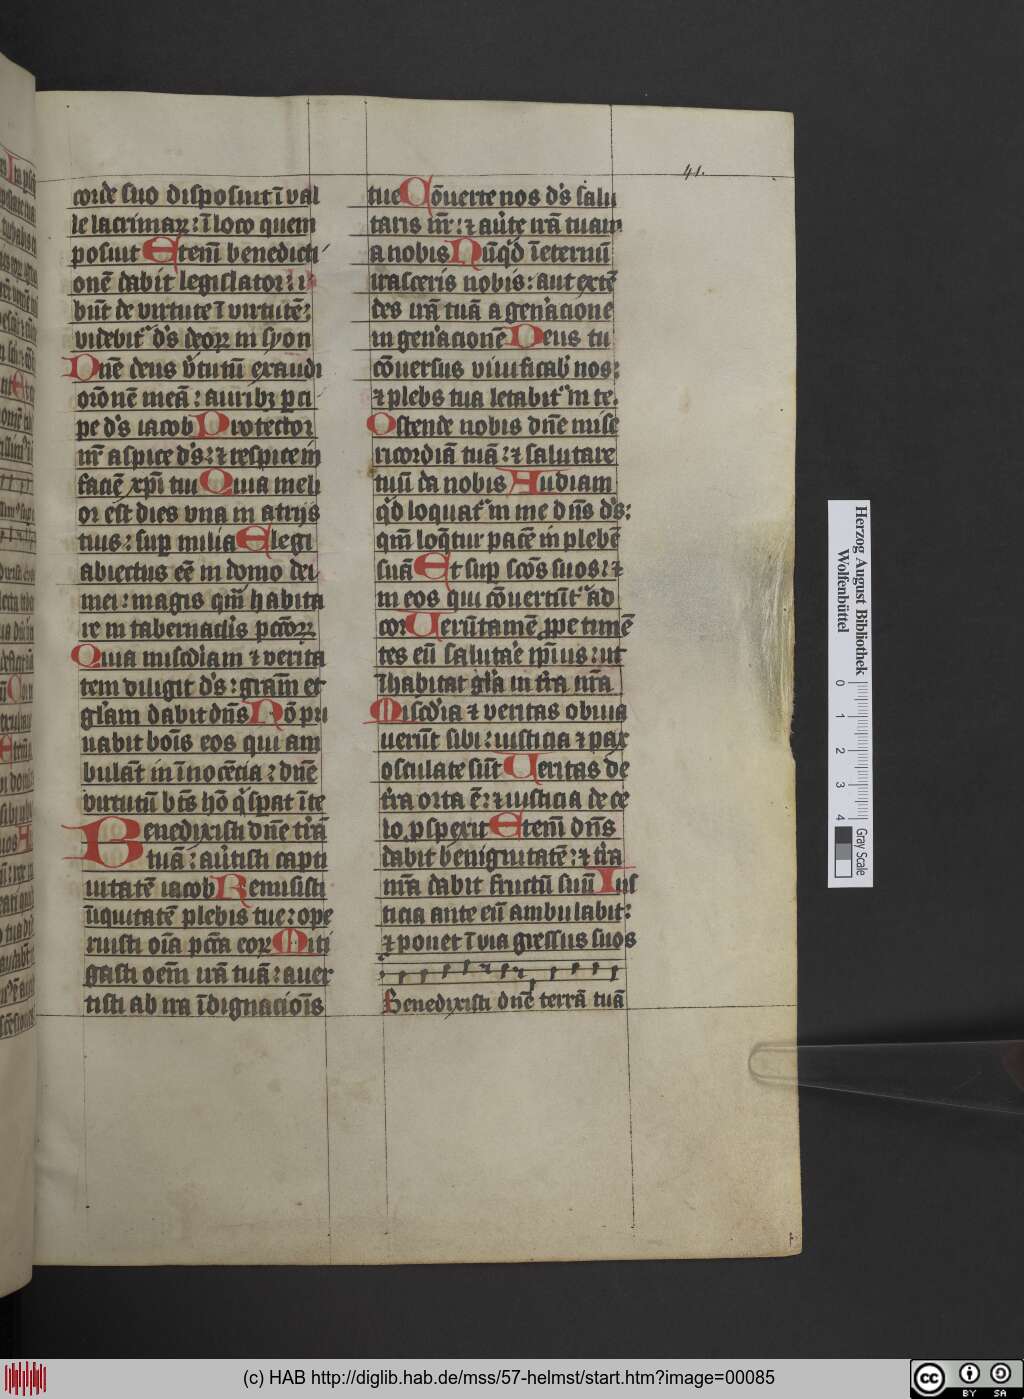 41.
corde suo disposuit ī val
le lacrimaꝝ: ī loco quem
posuit Etem̄ benedicti
onē dabit legislator: i
būt de virtute ī virtutē:
videbit᷑ ds̄ deoꝝ in syon
Dn̄e deus v̓tutū exaudi
or̄onē meā: auribꝫ ꝑci
pe ds̄ iacob Protector
nr̄ aspice ds̄: ⁊ respice in
faciē xp̄i tui Quia meli
or est dies vna in atrijs
tuis: suꝑ milia Elegi
abiectus eē in domo dei
mei: magis qm̄ habita
re in tabernaclīs pccōꝝ
Quia miscdīam ⁊ verita
tem diligit ds̄: grām et
glām dabit dn̄s Nō pri
uabit boīs eos qui am
bulāt in īnocēcia: dn̄e
virtutū bt̄s hō q̓ sꝑat ī te
Benedixisti dn̄e tr̄ā
tuā: au̓tisti capti
uitatē iacob Remisisti
īiquitatē plebis tue: ope
ruisti oīa pcc̄a eoꝝ Miti
gasti oem̄ irā tuā: auer
tisti ab ira īdignacioīs
tue Cōuerte nos ds̄ salu
taris nr̄: ⁊ au̓te irā tuam
a nobis Nūq̓d ī eternū
irasceris nobis: aut extē
des irā tuā a gen̓acione
in gen̓acionē Deus tu
cōuersus viuificab̓ nos:
⁊ plebs tua letabit᷑ in te.
Ostende nobis dn̄e mise
ricordiā tuā: ⁊ salutare
tuū da nobis Audiam
q̓d loquat᷑ in me dn̄s ds̄:
qm̄ loq̄tur pacē in plebē
suā Et suꝑ scōs suos: ⁊
in eos qui cōuertūt᷑ ad
cor Uerūtamē ꝓpe timē
tes eū saluta̓e ip̄ius: ut
īhabitat glīa in tr̄ra nr̄a
Miscdīa ⁊ veritas obuia
uerūt sibi: iusticia ⁊ pax
osculate sūt Ueritas de
tr̄ra orta ē: ⁊ iusticia de ce
lo ꝓspexit Etem̄ dn̄s
dabit benignitatē: ⁊ tr̄ra
nr̄a dabit fructū suū Ius
ticia ante eū ambulabit:
⁊ ponet ī via gressus suos
Benedixisti dn̄e terrā tuā
Herzog August Bibliothek
Wolfenbüttel
0 1 2 3 4
Gray Scale
(c) HAB http://diglib.hab.de/mss/57-helmst/start.htm?image=00085
cc BY SA